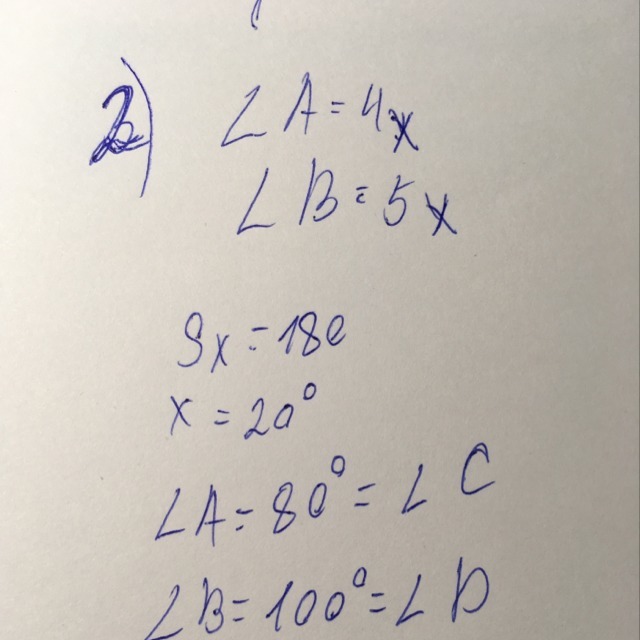 2)
∠A=4x
∠B=5x
9x=180
x=20°
∠A=80°=∠C
∠B=100°=∠D